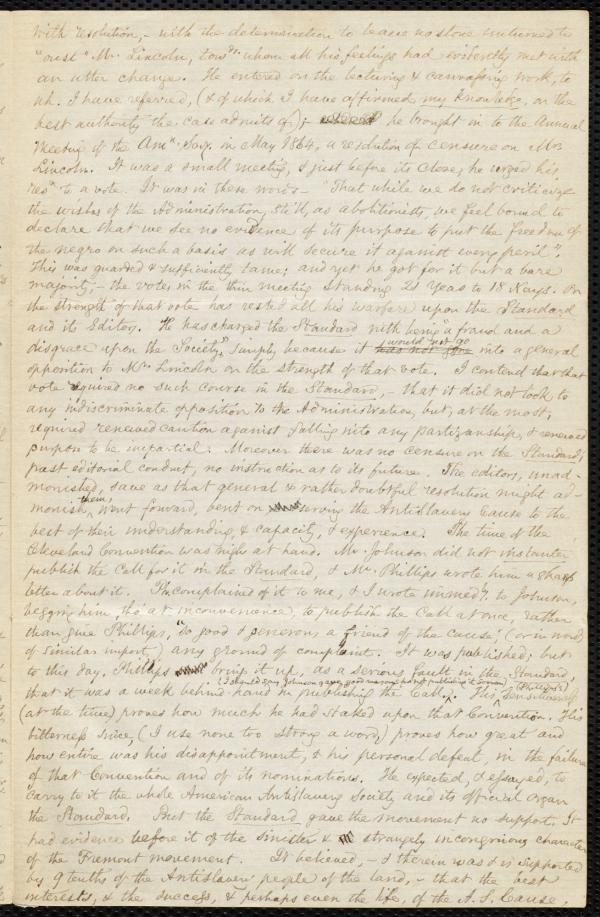 with resolution, - with the determination to leave no stone unturned to
"oust" Mr. Lincoln, towds. whom all his feelings had evidently met with
an utter change. He entered on the lecturing & canvassing work, to
wh. I have referred, (& of which I have affirmed my knowledge, on the
best authority the case admits of); he brought in to the Annual
Meeting of the Amn. Socy. in May 1864, a resolution of censure on Mr.
Lincoln. It was a small meeting, & just before its close, he urged his
resn to a vote. It was in these words - "That while we do not criticize
the wishes of the Administration, still, as abolitionists, we feel bound to
declare that we see no evidence of its purpose to put the freedom of
the negro on such a basis as will secure it against every peril".
This was guarded & sufficiently tame; and yet he got for it but a bare
majority, - the vote, in the thin meeting standing 21 Yeas to 18 Nays. On
the strength of that vote has rested all his warfare upon the Standard
and its Editors. He has charged the Standard with being "a fraud and a
disgrace upon the Society," simply because it would not go into a general
opposition to Mr. Lincoln on the strength of that vote. I contend that that
vote required no such course in the Standard, - that it did not look to
any indiscriminate opposition to the Administration, but, at the most,
required renewed caution against falling into any partizanship, & renewed
purpose to be impartial. Moreover there was no censure on the Standard's
past editorial conduct, no instruction as to its future. The editors, unad-
monished, save as that general & rather doubtful resolution might ad-
monish them, went forward, bent on serving the Antislavery Cause to the
best of their understanding, & capacity, & experience. The time of the
Cleveland Convention was nigh at hand. Mr. Johnson did not instanter
publish the Call for it in the Standard, & Mr. Phillips wrote him a sharp
letter about it. Ph. complained of it to me, & I wrote immedy. to Johnson,
begging him, tho' at inconvenience, to publish the Call at once, rather
than give Phillips, "so good & generous a friend of the cause", (or in words
of similar import) any ground of complaint. It was published; but
to this day, Phillips bring it up, as a serious fault in the Standard,
that it was a week behind hand in publishing the Call. His (Phillips's) sensitiveness
(at the time) proves how much he had staked upon that Convention. His
bitterness since, (I use none too strong a word) proves how great and
how entire was his disappointment, & his personal defeat, in the failure
of that Convention and of its nominations. He expected, & essayed, to
carry to it the whole American Antislavery Society and its official organ
the Standard. But the Standard gave the movement no support. It
had evidence before it of the sinister & strangely incongruous character
of the Fremont movement. It believed, - & therein was & is supported
by 9 tenths of the Antislavery people of the land, - that the best
interests, & the success, & perhaps even the life, of the A.S. Cause,